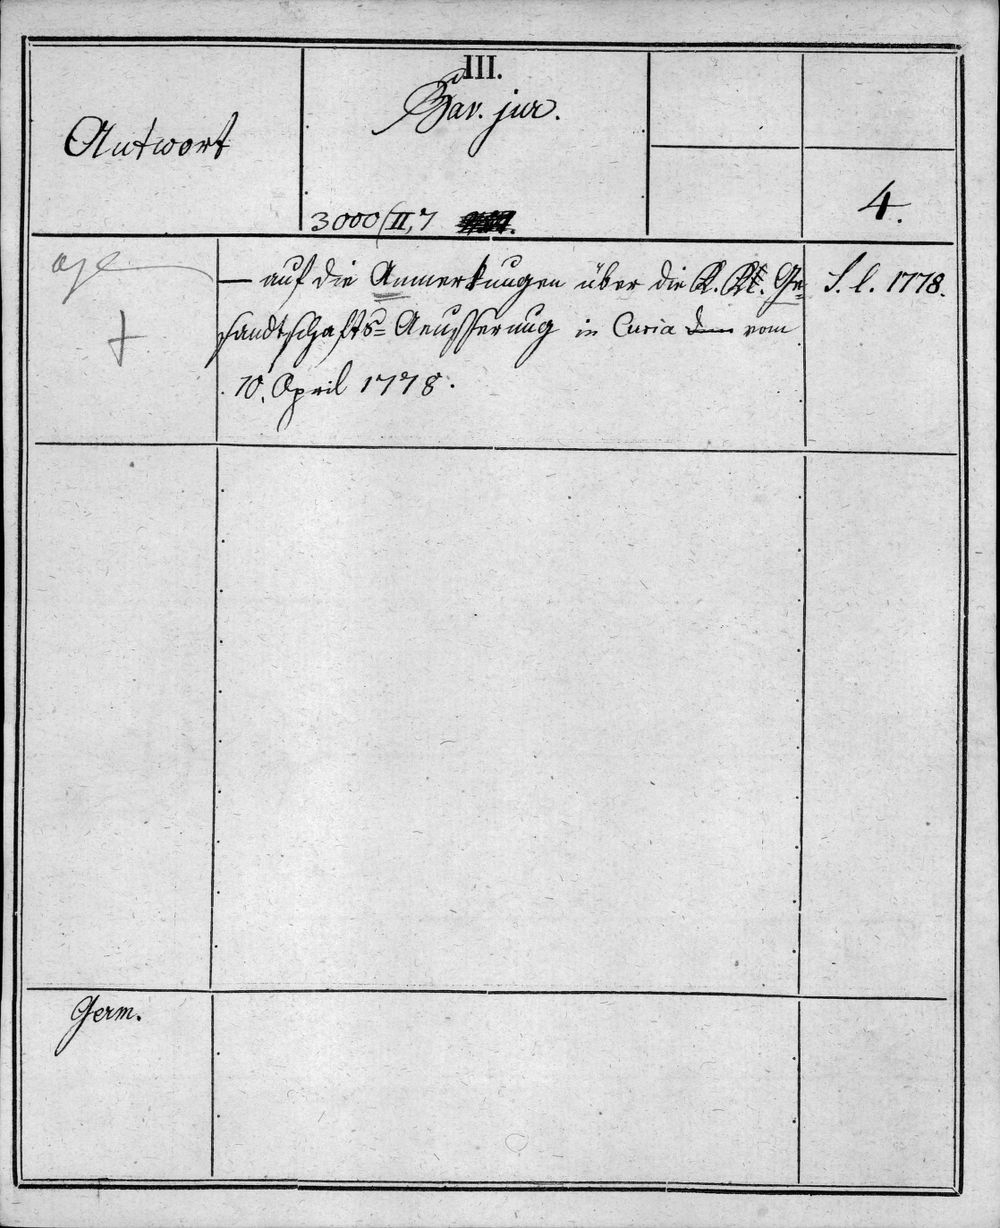 III.
Bav. jur.
Antwort
4.
3000/II,7
— auf die Anmerkungen über die K. K. Ge=
sandtschafts=Aeusserung in Curia vom
10. April 1778.
S. l. 1778.
†
Germ.